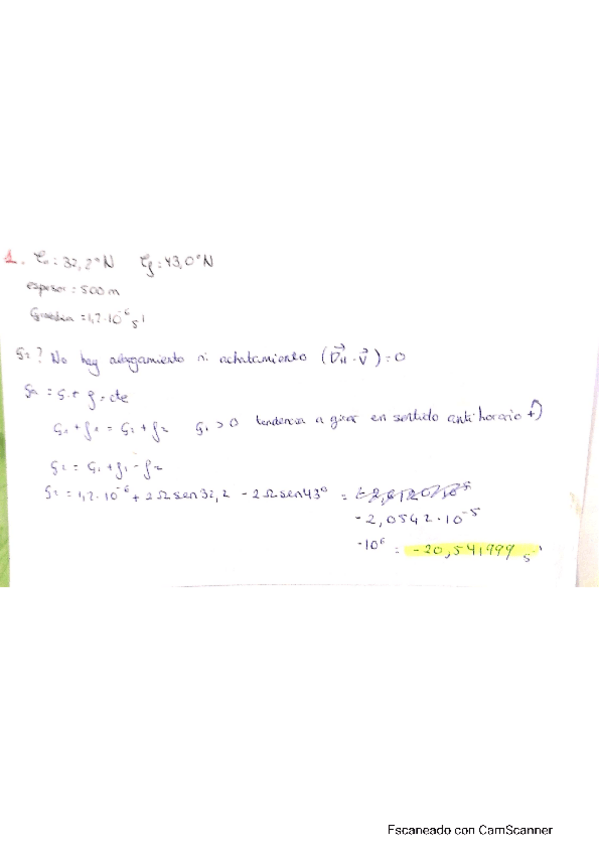 1. φ₀: 32,2° N φf: 43,0° N
espesor: 500 m
ζmedia = 1,2·10⁻⁶ s⁻¹
ζ₂? No hay alargamiento ni achatamiento (∇H · V) = 0
ζa = ζ + f = cte
ζ₁ + f₁ = ζ₂ + f₂ ζ₁ > 0 tendencia a girar en sentido antihorario +)
ζ₂ = ζ₁ + f₁ - f₂
ζ₂ = 1,2·10⁻⁶ + 2Ω sen 32,2 - 2Ω sen 43° =
-2,0542·10⁻⁵
·10⁶ = -20,541999 s⁻¹
Escaneado con CamScanner